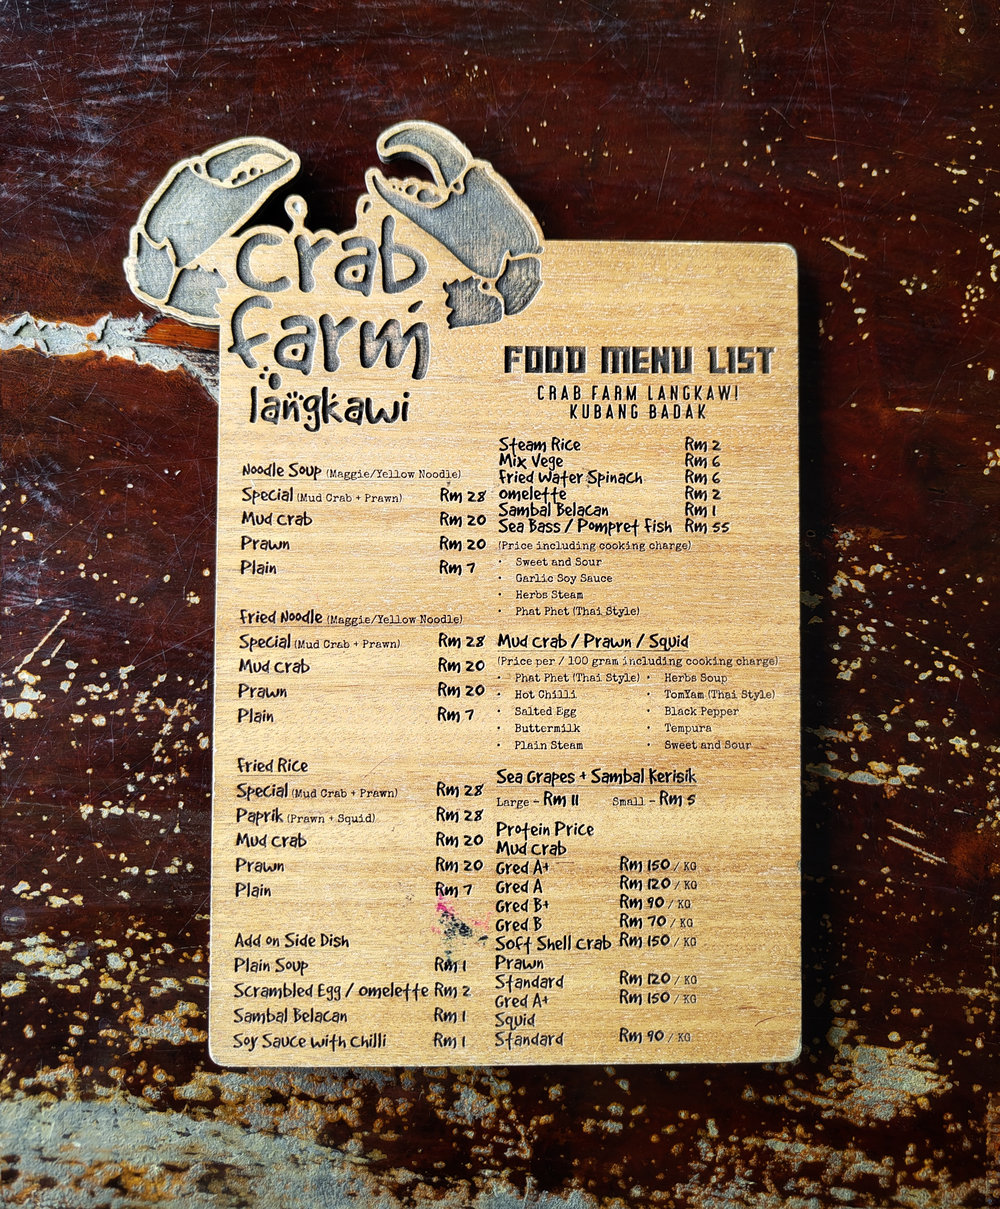 crab
farm
langkawi
FOOD MENU LIST
CRAB FARM LANGKAWI
KUBANG BADAK
Noodle Soup (Maggie/Yellow Noodle)
Special (Mud Crab + Prawn) Rm 28
Mud crab Rm 20
Prawn Rm 20
Plain Rm 7
Fried Noodle (Maggie/Yellow Noodle)
Special (Mud Crab + Prawn) Rm 28
Mud crab Rm 20
Prawn Rm 20
Plain Rm 7
Fried Rice
Special (Mud Crab + Prawn) Rm 28
Paprik (Prawn + Squid) Rm 28
Mud crab Rm 20
Prawn Rm 20
Plain Rm 7
Add on Side Dish
Plain Soup Rm 1
Scrambled Egg / omelette Rm 2
Sambal Belacan Rm 1
Soy Sauce with chilli Rm 1
Steam Rice Rm 2
Mix Vege Rm 6
Fried Water Spinach Rm 6
omelette Rm 2
Sambal Belacan Rm 1
Sea Bass / Pompret Fish Rm 55
(Price including cooking charge)
• Sweet and Sour
• Garlic Soy Sauce
• Herbs Steam
• Phat Phet (Thai Style)
Mud crab / Prawn / Squid
(Price per / 100 gram including cooking charge)
• Phat Phet (Thai Style) • Herbs Soup
• Hot Chilli • TomYam (Thai Style)
• Salted Egg • Black Pepper
• Buttermilk • Tempura
• Plain Steam • Sweet and Sour
Sea Grapes + Sambal Kerisik
Large - Rm 11 Small - Rm 5
Protein Price
Mud crab
Gred A+ Rm 150 / KG
Gred A Rm 120 / KG
Gred B+ Rm 90 / KG
Gred B Rm 70 / KG
Soft Shell crab Rm 150 / KG
Prawn
Standard Rm 120 / KG
Gred A+ Rm 150 / KG
Squid
Standard Rm 90 / KG